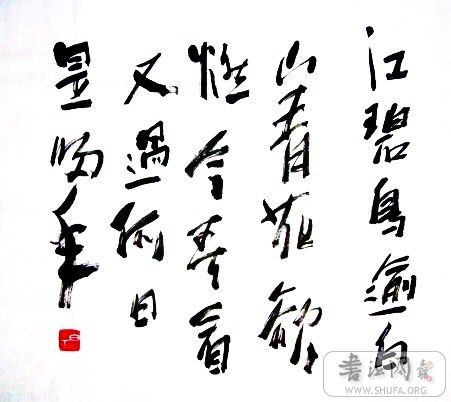 江碧鳥逾白
山青花欲
燃今春看
又過何日
是歸年
書法网
WWW.SHUFA.ORG